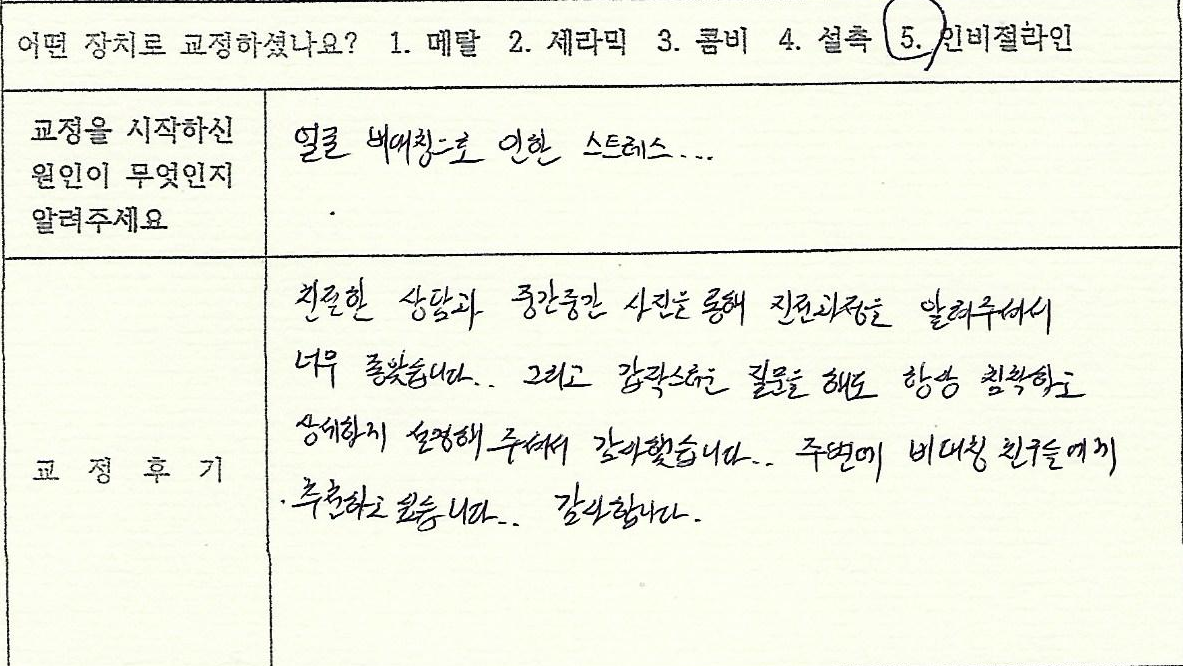 어떤 장치로 교정하셨나요? 1. 메탈 2. 세라믹 3. 콤비 4. 설측 5. 인비절라인
교정을 시작하신
원인이 무엇인지
알려주세요
얼굴 비대칭으로 인한 스트레스...
교 정 후 기
친절한 상담과 중간중간 사진을 통해 진전과정을 알려주셔서
너무 좋았습니다.. 그리고 갑작스런 질문을 해도 항상 침착하고
상세하게 설명해 주셔서 감사했습니다.. 주변에 비대칭 친구들에게
추천하고 싶습니다.. 감사합니다.